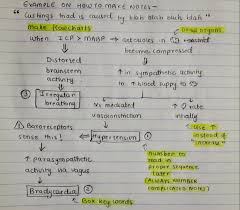 EXAMPLE ON HOW TO MAKE NOTES-
"Cushings triad is caused by blah blah blah blah"
Make flowcharts
Draw organs
When ICP > MABP → arterioles in
become compressed
Distorted
brainstem
activity
↑ in sympathetic activity
to ↑ blood supply to
③ Irregular
breathing
α1 mediated
vasoconstriction
↑ O rate
initially
USE ↑
instead of
increase
Baroreceptors
sense this!
Hypertension ①
↑ parasympathetic
activity via vagus
number to
read in
proper sequence
later
(ALWAYS NUMBER
COMPLICATED NOTES)
Bradycardia ②
Box key words